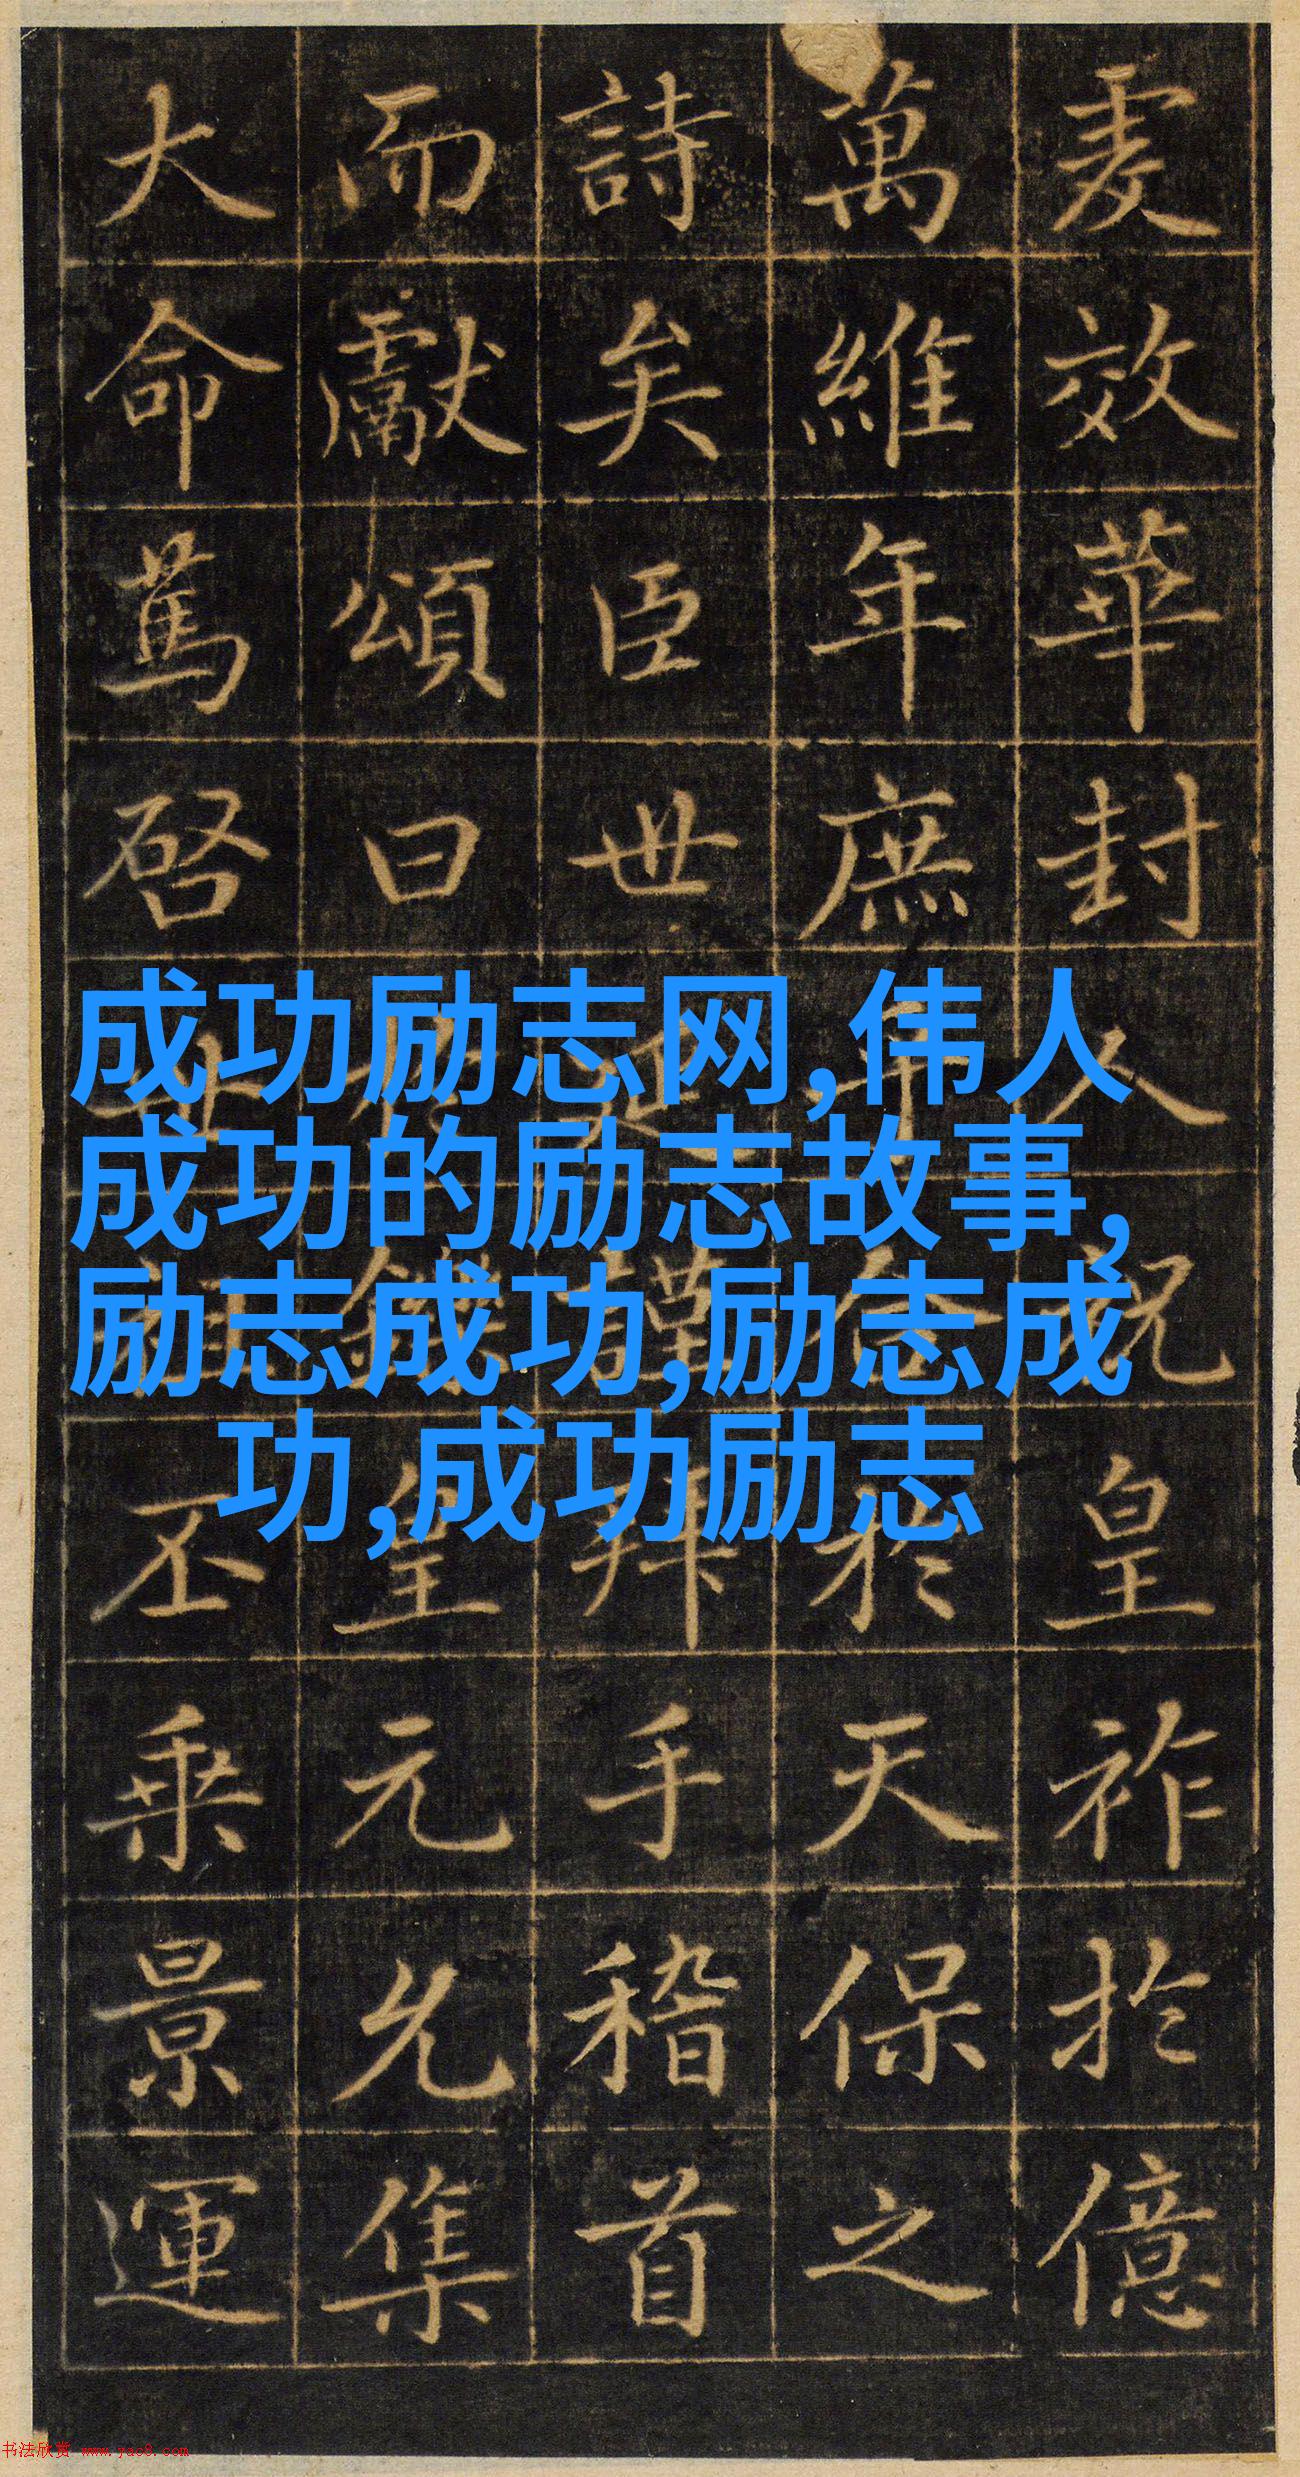 虔效華封人祝皇祚於億
萬維年庶乎合於天保之
詩矣臣世延謹拜手稽首
而獻頌曰於鑠皇元允集
大命篤啓世祖丕乘景運
成功励志网,伟人
成功的励志故事,
励志成功,励志成
功,成功励志
书法欣赏 www.yac8.com